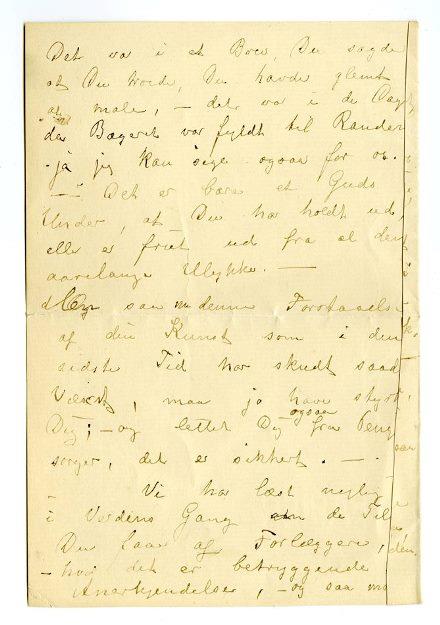 Det var i et Brev, Du sagde
at Du troede, Du havde glemt
at male, — det var i de Dage,
da Bægeret var fyldt til Randen
ja jeg kan sige ogsaa for os.
— Det er bare et Guds
Under, at Du har holdt ud,
eller er friet ud fra al den
aarelange Ulykke. —
Men saa denne Forstaaelse
af din Kunst som i den
sidste Tid har skudt saad
Vækst, maa jo have styrk
Dig; — og lettet Dig ogsaa fra Penge
sorger, det er sikkert. —
Vi har læst nylig
i Verdens Gang de Til
Du faar af Forlæggere,
det er betryggende
Anerkjendelse, — og saa må